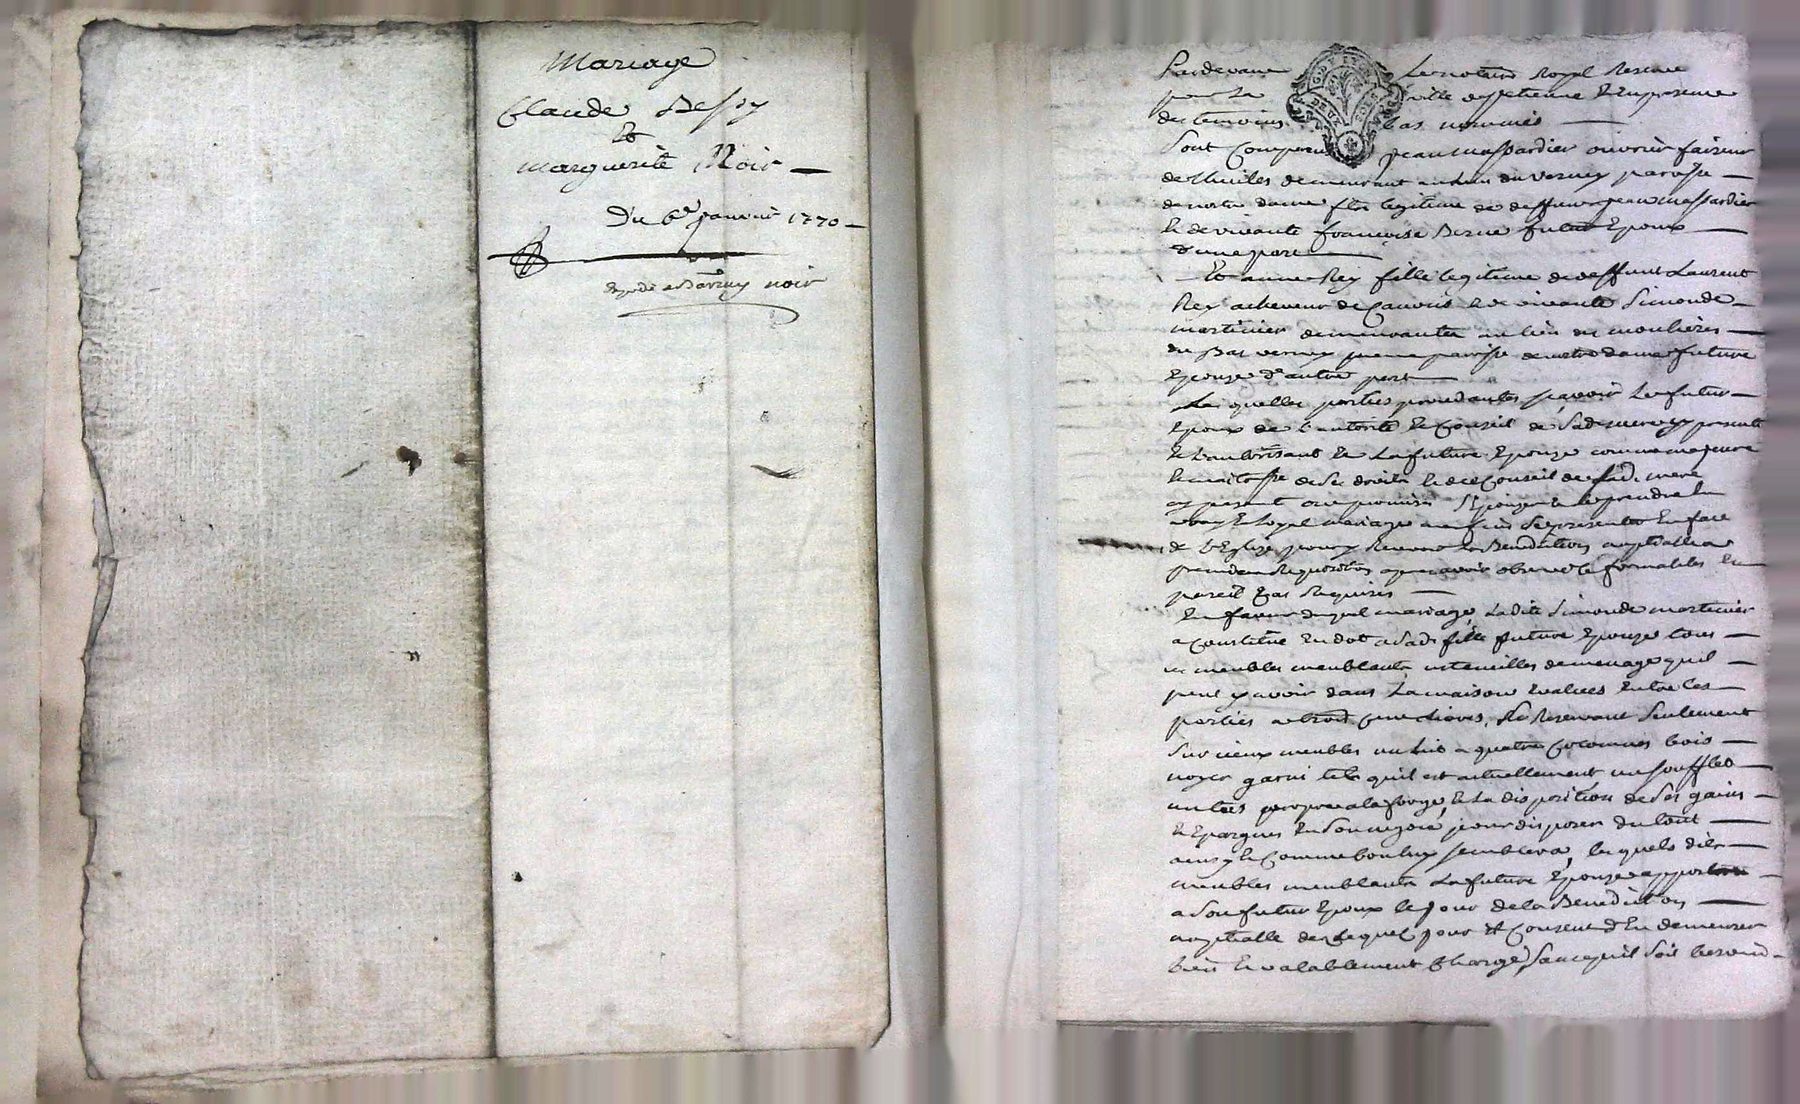 Mariage
Claude Bessy
Et
Marguerite Noir
Du 6e janvier 1770
Expédié a Barzuy noir
G. DE LYON
DEUX SOLS
Pardevant Le notaire Royal Reservé
pour La ville de St etienne Et En presence
des temoins bas nommés
Sont Comparus Jean massardier ouvrier faiseur
de Vuilles demeurant au lieu du vernay paroisse
de notre dame fils legitime de deffunt jean massardier
Et de vivante françoise Berne futur Epoux
d'une part
Et anne Rey fille legitime de deffunt Laurent
Rey acheveur de Canons et de vivante Simonde
martinier demeurantes au lieu des moulières
du Bas vernay meme paroisse de notre dame future
Epouze d'autre part
Lesquelles parties procedantes sçavoir Le futur
Epoux de l'autorité Et Conseil de Sade mere icy presente
Et L'authorisant Et La future Epouze comme majeure
Et maitresse de Ses droits Et de Conseil de sad. mere
icy present ont promis S'Epouzer Et se prendre En
vray Et loyal mariage aux fins Se presenter En face
de L'Eglise pour y Recevoir La Benediction nuptialle a
premiere Requisition apres avoir observé les formalités En
pareil Cas Requises
En faveur duquel mariage, Ladite Simonde martinier
a Constitué En dot a Sad. fille future Epouze tous
les meubles meublants, ustencilles de menage quil
peut y avoir dans La maison Evalués Entre les
parties a trois Cent livres, Se Reservant Seulement
Sur iceux meubles un Lit a quatre Colonnes bois
noyer garni tel quil est actuellement un soufflet
un tas propre a la forge, Et La disposition de Ses gains
Et Epargnes En Son negoce pour disposer du tout
ainsy Et Comme bon luy semblera, les quels dits
meubles meublants La future Epouze apportera
a Son futur Epoux le jour de la Benediction
nuptialle des Lequel jour il Consent d'En demeurer
bien Et valablement Chargé, Sans quil Soit besoin d